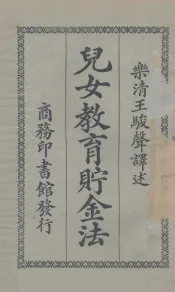 樂清王駿聲譯述
兒女教育貯金法
商務印書館發行